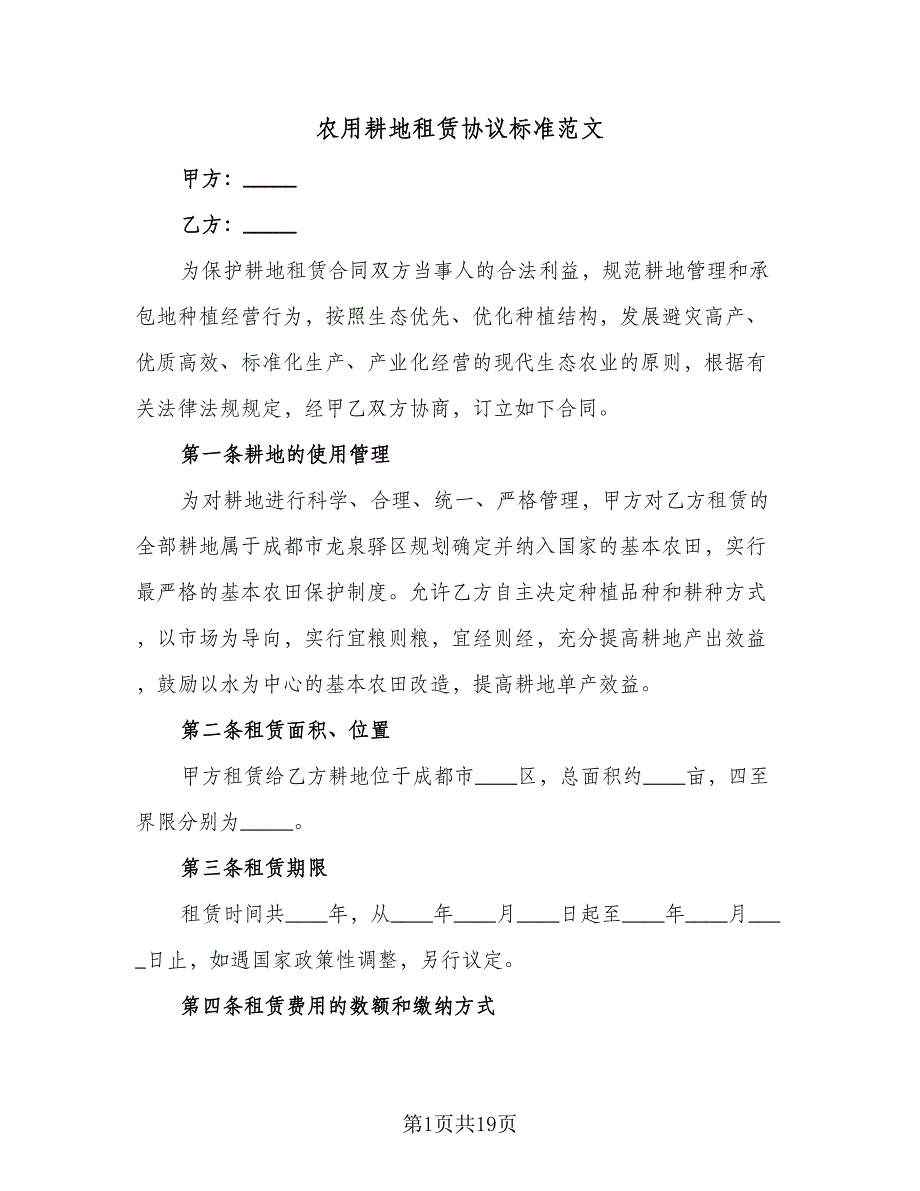 农用耕地租赁协议标准范文
甲方：_____
乙方：_____
为保护耕地租赁合同双方当事人的合法利益，规范耕地管理和承
包地种植经营行为，按照生态优先、优化种植结构，发展避灾高产、
优质高效、标准化生产、产业化经营的现代生态农业的原则，根据有
关法律法规规定，经甲乙双方协商，订立如下合同。
第一条耕地的使用管理
为对耕地进行科学、合理、统一、严格管理，甲方对乙方租赁的
全部耕地属于成都市龙泉驿区规划确定并纳入国家的基本农田，实行
最严格的基本农田保护制度。允许乙方自主决定种植品种和耕种方式
，以市场为导向，实行宜粮则粮，宜经则经，充分提高耕地产出效益
，鼓励以水为中心的基本农田改造，提高耕地单产效益。
第二条租赁面积、位置
甲方租赁给乙方耕地位于成都市____区，总面积约____亩，四至
界限分别为_____。
第三条租赁期限
租赁时间共____年，从____年____月____日起至____年____月___
_日止，如遇国家政策性调整，另行议定。
第四条租赁费用的数额和缴纳方式
第1页共19页